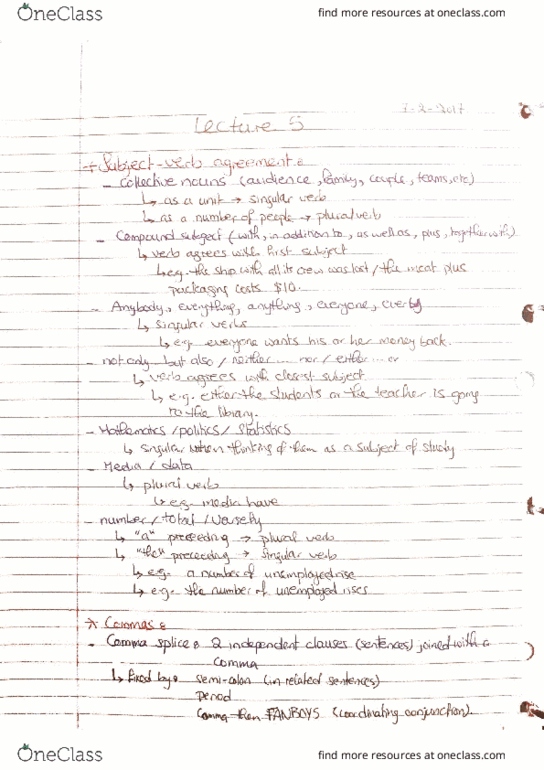 OneClass
find more resources at oneclass.com
7-2-2017
Lecture 5
+ Subject-verb agreement:
- Collective nouns (audience, family, couple, teams, etc)
↳ as a unit → singular verb
↳ as a number of people → plural verb
- Compound subject (with, in addition to, as well as, plus, together with)
↳ verb agrees with first subject
↳ e.g. the ship with all its crew was lost / the meat plus
packaging costs $10.
- Anybody, everything, anything, everyone,
↳ singular verbs
↳ e.g. everyone wants his or her money back.
- not only - but also / neither .... nor / either ... or
↳ verb agrees with closest subject
↳ e.g. either the students or the teacher is going
to the library.
- Mathematics / politics / statistics
↳ singular when thinking of them as a subject of study
- Media / data
↳ plural verb
↳ e.g. media have
- number / total /
↳ "a" preceeding → plural verb
↳ "the" preceeding → singular verb
↳ e.g. a number of unemployed rise
↳ e.g. the number of unemployed rises
* Commas:
- Comma splice: 2 independent clauses (sentences) joined with a
comma
↳ fixed by: semi-colon (in related sentences)
period
comma then FANBOYS (coordinating conjunction).
OneClass
find more resources at oneclass.com